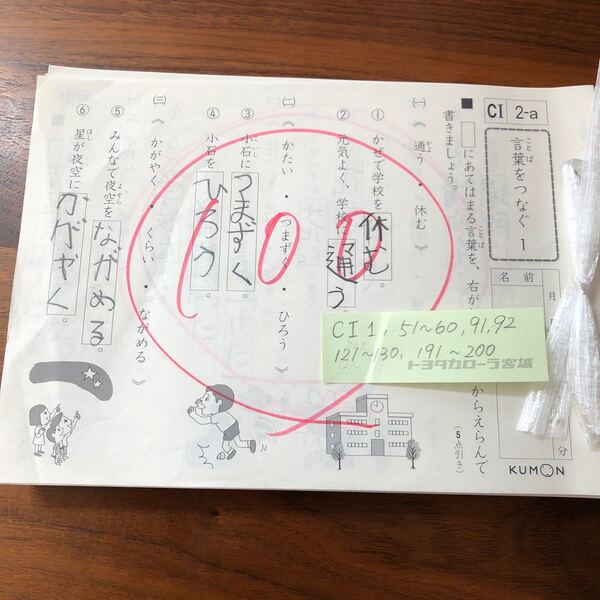 CI 2-a
言葉をつなぐ 1
ことば
名前
月
分
■ □にあてはまる言葉を、右が
からえらんで
書きましょう。
ことば
(5点引き)
(一)《 通う ・ 休む 》
かよ
① かぜで学校を休む。
② 元気よく、学校に通う。
(二)《 かたい ・ つまずく ・ ひろう 》
③ 小石につまずく。
こいし
④ 小石をひろう。
(三)《 かがやく ・ くらい ・ ながめる 》
⑤ みんなで夜空をながめる。
よぞら
⑥ 星が夜空にかがやく。
ほし
100
CI 1, 51~60, 91,92
121~130, 191~200
トヨタカローラ宮城
KUMON